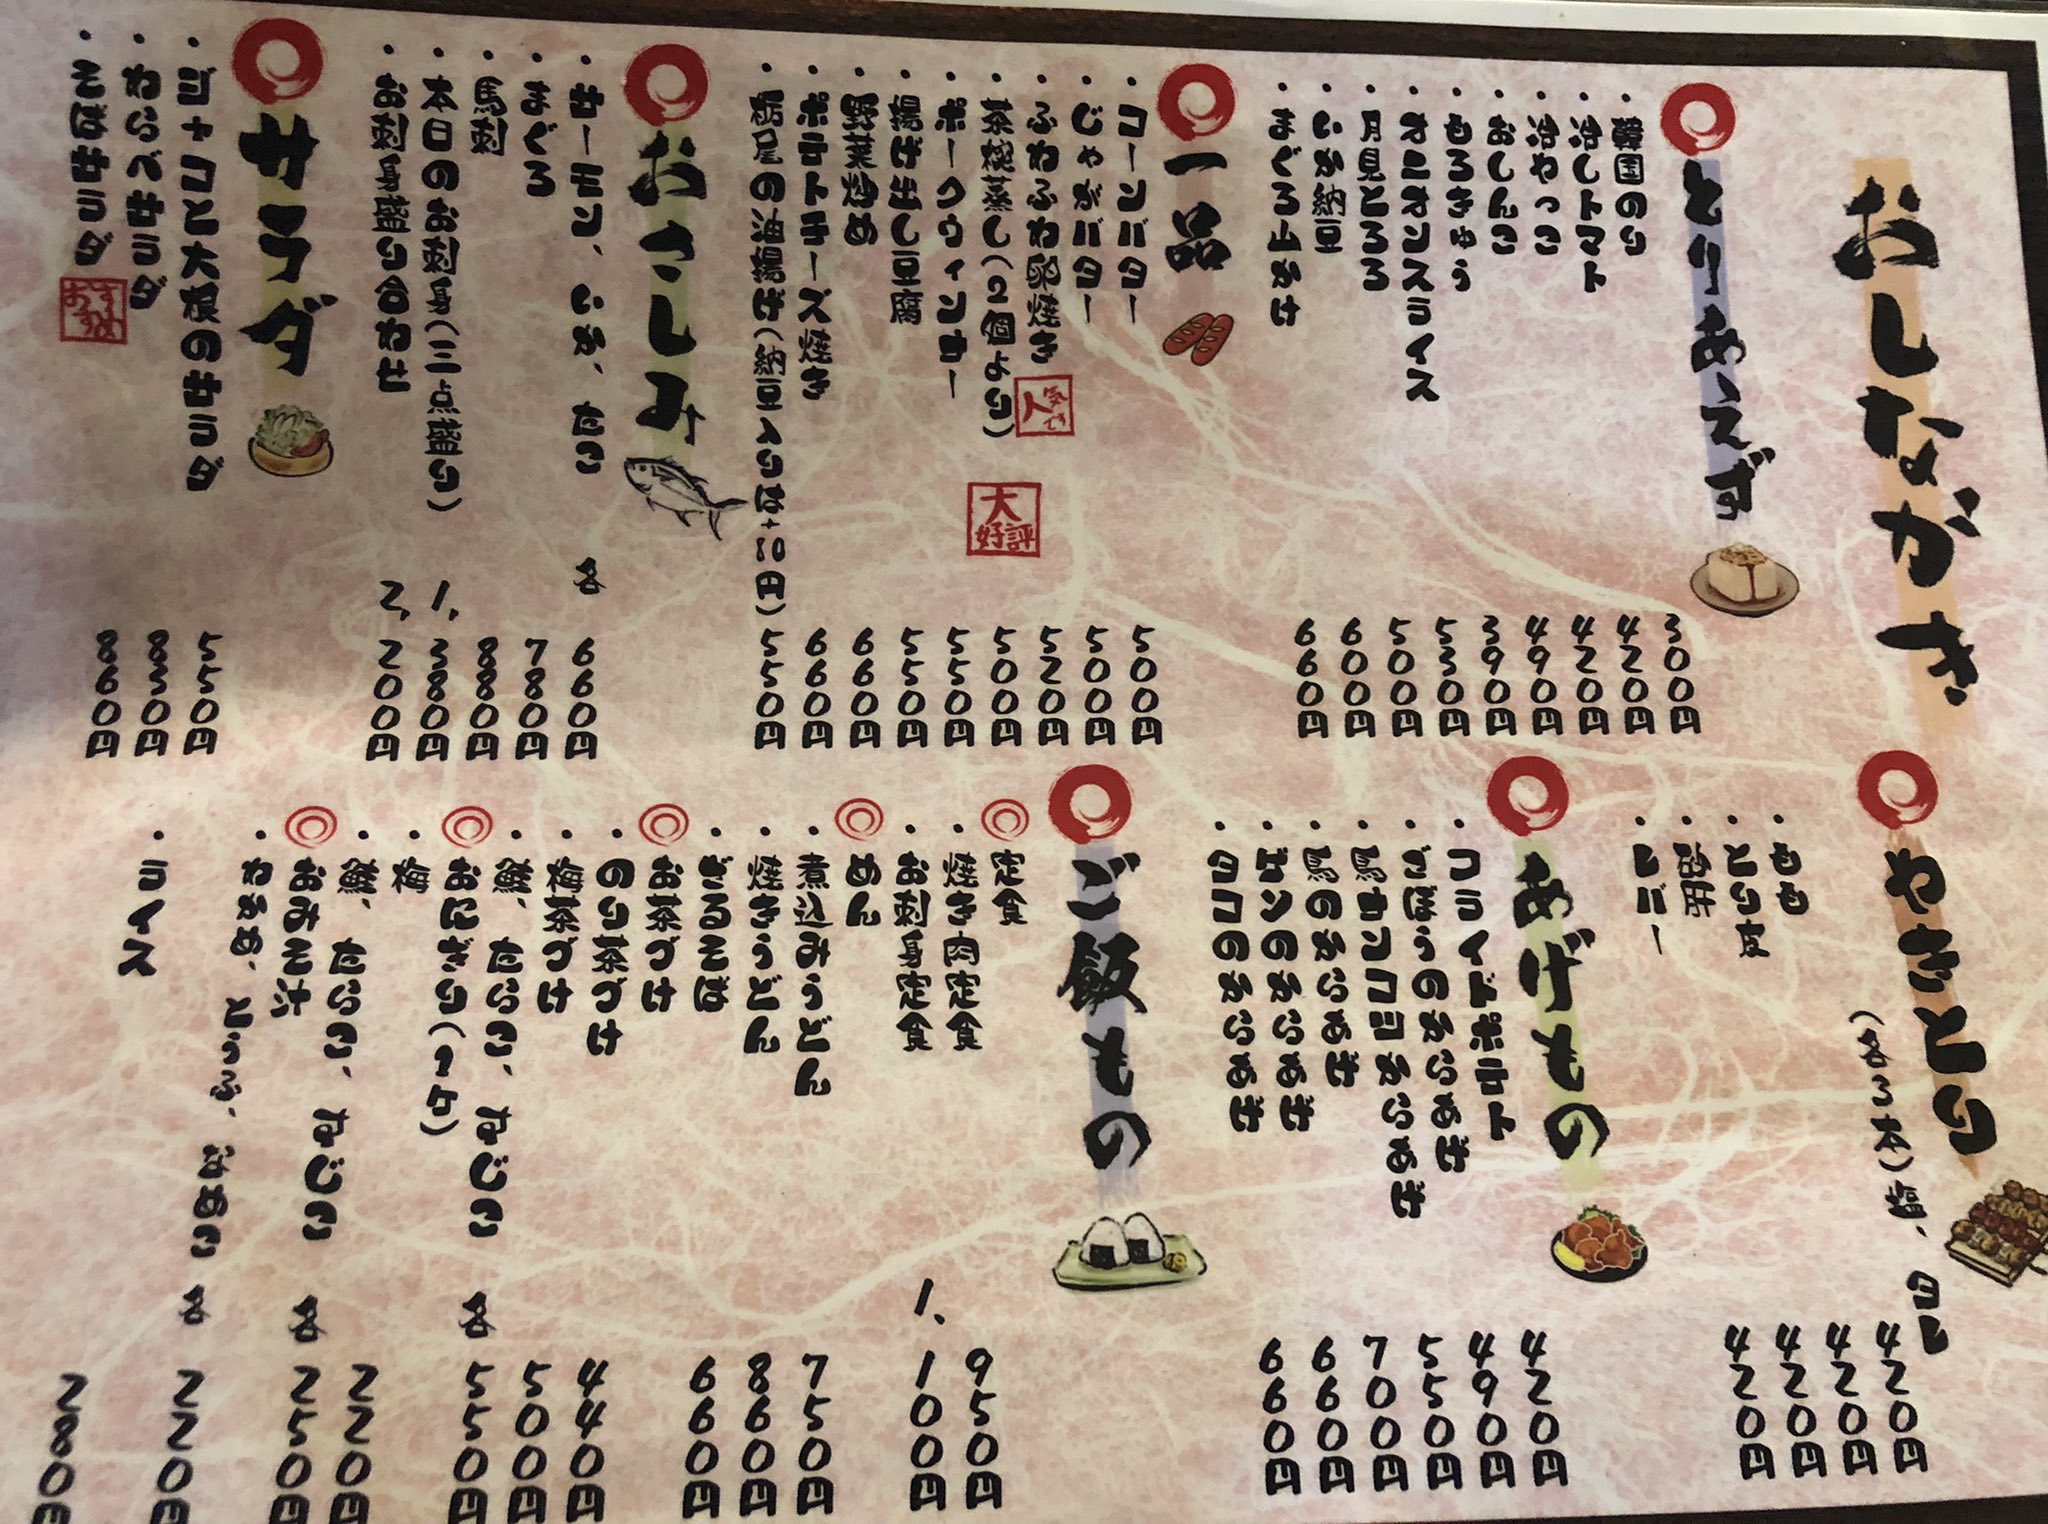 おしながき
とりあえず
韓国のり 300円
冷しトマト 420円
冷やっこ 420円
おしんこ 490円
もろきゅう 390円
オニオンスライス 530円
月見とろろ 500円
いか納豆 600円
まぐろ山かけ 660円
一品
コーンバター 500円
じゃがバター 500円
ふわふわ卵焼き 人気です 520円
茶碗蒸し(2個より) 500円
ポークウィンナー 大好評 550円
揚げ出し豆腐 550円
野菜炒め 660円
ポテトチーズ焼き 660円
栃尾の油揚げ(納豆入りは+80円) 550円
おさしみ
サーモン、いか、たこ 各 660円
まぐろ 780円
馬刺 880円
本日のお刺身(三点盛り) 1,380円
お刺身盛り合わせ 2,200円
サラダ
ジャコと大根のサラダ 550円
わいべサラダ 830円
そばサラダ おすすめ 860円
やきとり(各3本)塩、タレ
もも 420円
とり皮 420円
砂肝 420円
レバー 420円
あげもの
フライドポテト 420円
ごぼうのからあげ 490円
馬カツコロからあげ 550円
馬のからあげ 700円
ゲソのからあげ 660円
タコのからあげ 660円
ご飯もの
定食
焼き肉定食 950円
お刺身定食 1,100円
めん
煮込みうどん 750円
焼きうどん 860円
ざるそば 660円
お茶づけ
のり茶づけ 440円
梅茶づけ 500円
鮭、たらこ、なじこ 各 550円
おにぎり(1ケ)
梅 220円
鮭、たらこ、なじこ 各 250円
おみそ汁
わかめ、とうふ、なめこ 各 220円
ライス 280円